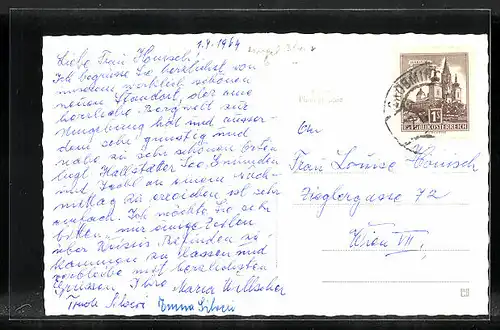 1.9.1964
Liebe Frau Hounsch!
Ich begrüsse Sie herzlichst von
unserem wirklich schönen
neuen Standort, der eine
herrliche Bergwelt zur
Umgebung hat und ausser-
dem sehr günstig und
nahe zu sehr schönen Orten
liegt. Hallstätter See, Gmunden
und Ischl an einem Nach-
mittag zu erreichen ist sehr
einfach. Ich möchte Sie sehr
bitten, mir einige Zeilen
über Ihr Befinden zu-
kommen zu lassen und
verbleibe mit herzlichsten
Grüssen Ihre Maria
Trude Emma
REPUBLIK ÖSTERREICH
1S
An
Frau Louise Hounsch
Zieglergasse 72
Wien VII.